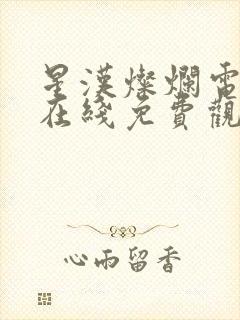 星漢燦爛電
在綫免費觀
心雨留香